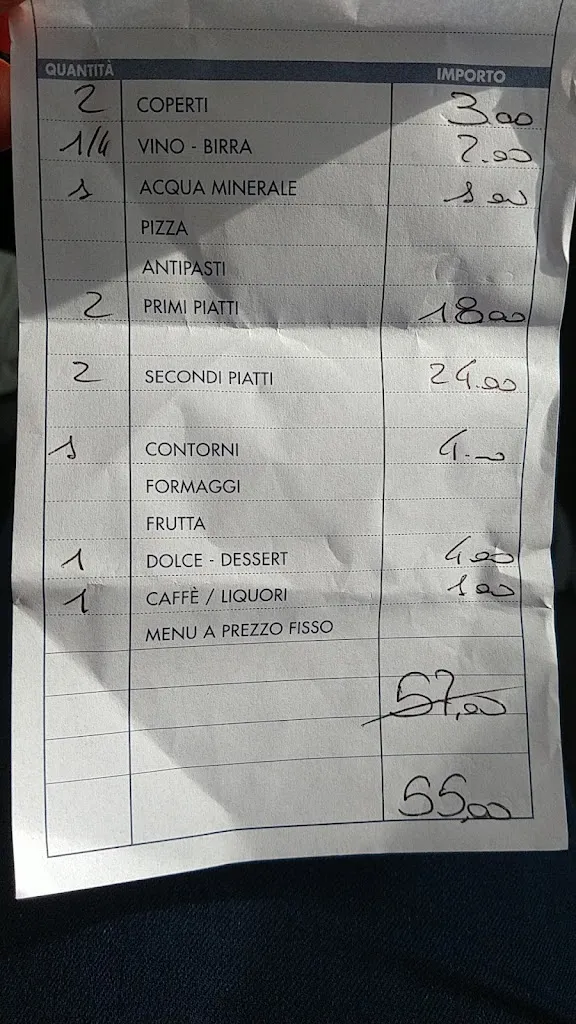 QUANTITÀ IMPORTO
2 COPERTI 3,00
1/4 VINO - BIRRA 2.00
1 ACQUA MINERALE 1 00
PIZZA
ANTIPASTI
2 PRIMI PIATTI 18,00
2 SECONDI PIATTI 24.00
1 CONTORNI 4.00
FORMAGGI
FRUTTA
1 DOLCE - DESSERT 4,00
1 CAFFÈ / LIQUORI 1 00
MENU A PREZZO FISSO
57,00
55,00